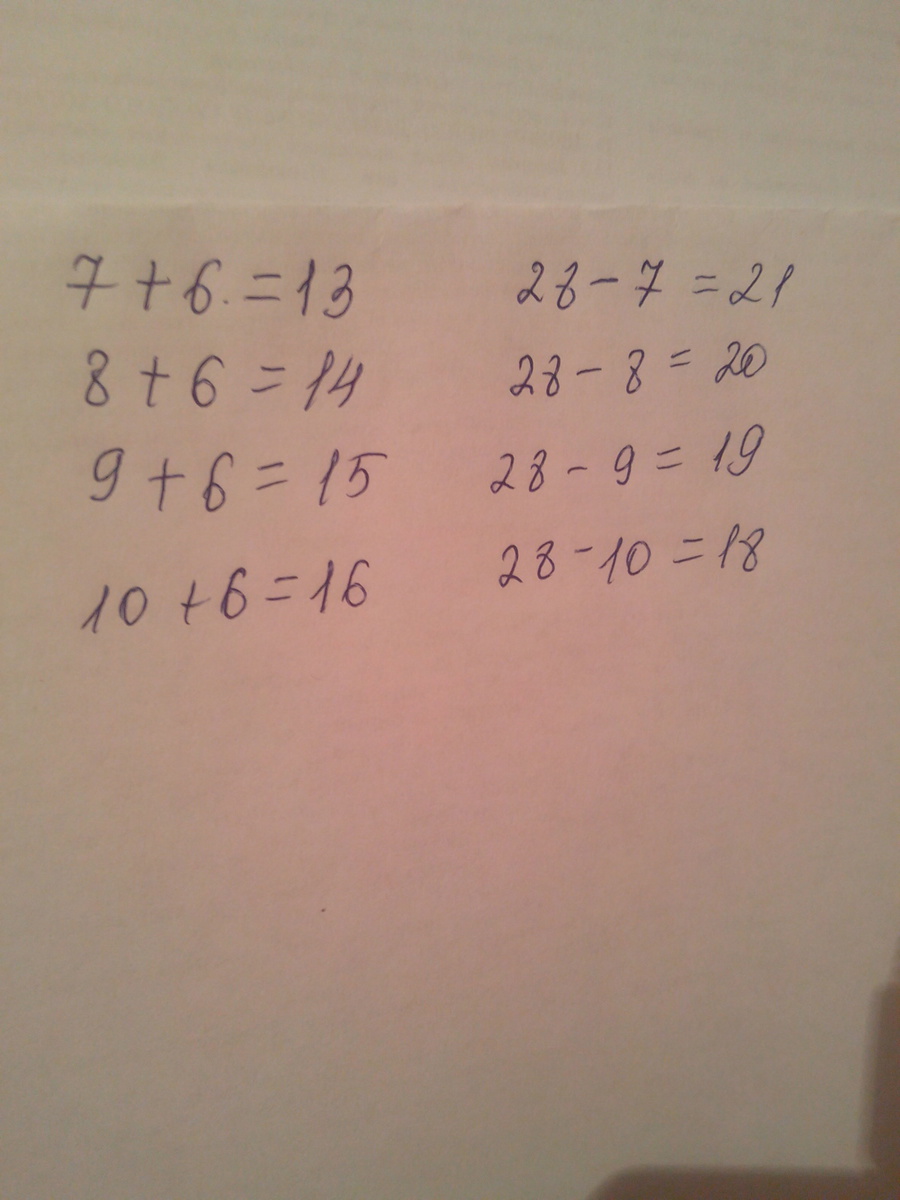 7 + 6 = 13
8 + 6 = 14
9 + 6 = 15
10 + 6 = 16
28 - 7 = 21
28 - 8 = 20
28 - 9 = 19
28 - 10 = 18